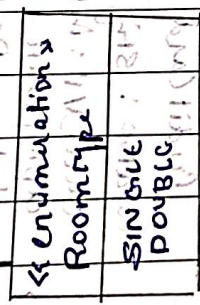 << enumeration >>
Roomtype
SINGLE
DOUBLE